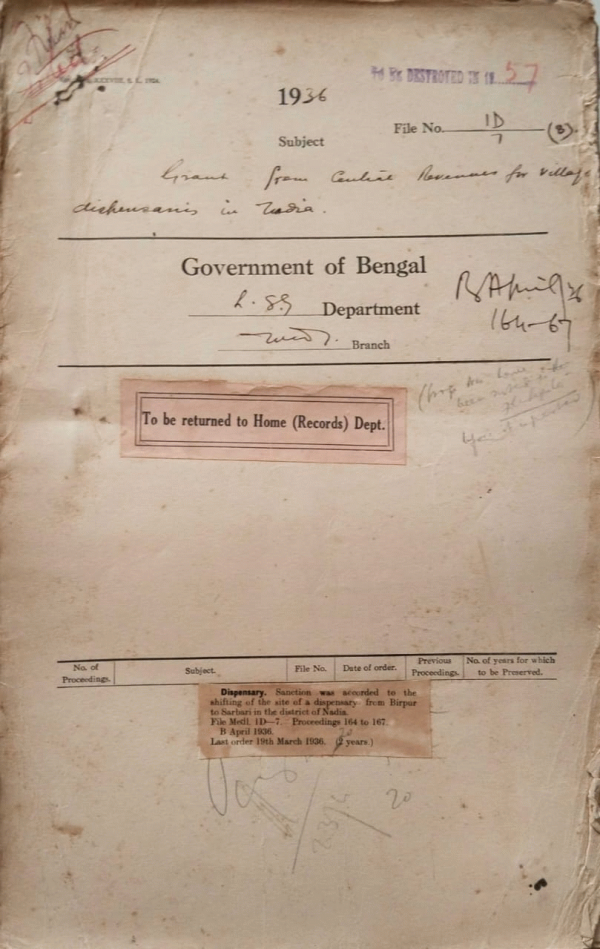 TO BE DESTROYED IN 19 57
1936
File No. 1D/7 (3)
Subject
Grant from Central Revenues for village
dispensaries in Nadia.
Government of Bengal
L. S. G. Department
Medl. Branch
B April/36
164-67
To be returned to Home (Records) Dept.
No. of Proceedings. Subject. File No. Date of order. Previous Proceedings. No. of years for which to be Preserved.
Dispensary. Sanction was accorded to the
shifting of the site of a dispensary from Birpur
to Sarbari in the district of Nadia.
File Medl. 1D—7. Proceedings 164 to 167.
B April 1936.
Last order 19th March 1936. (2 years.)
20
20